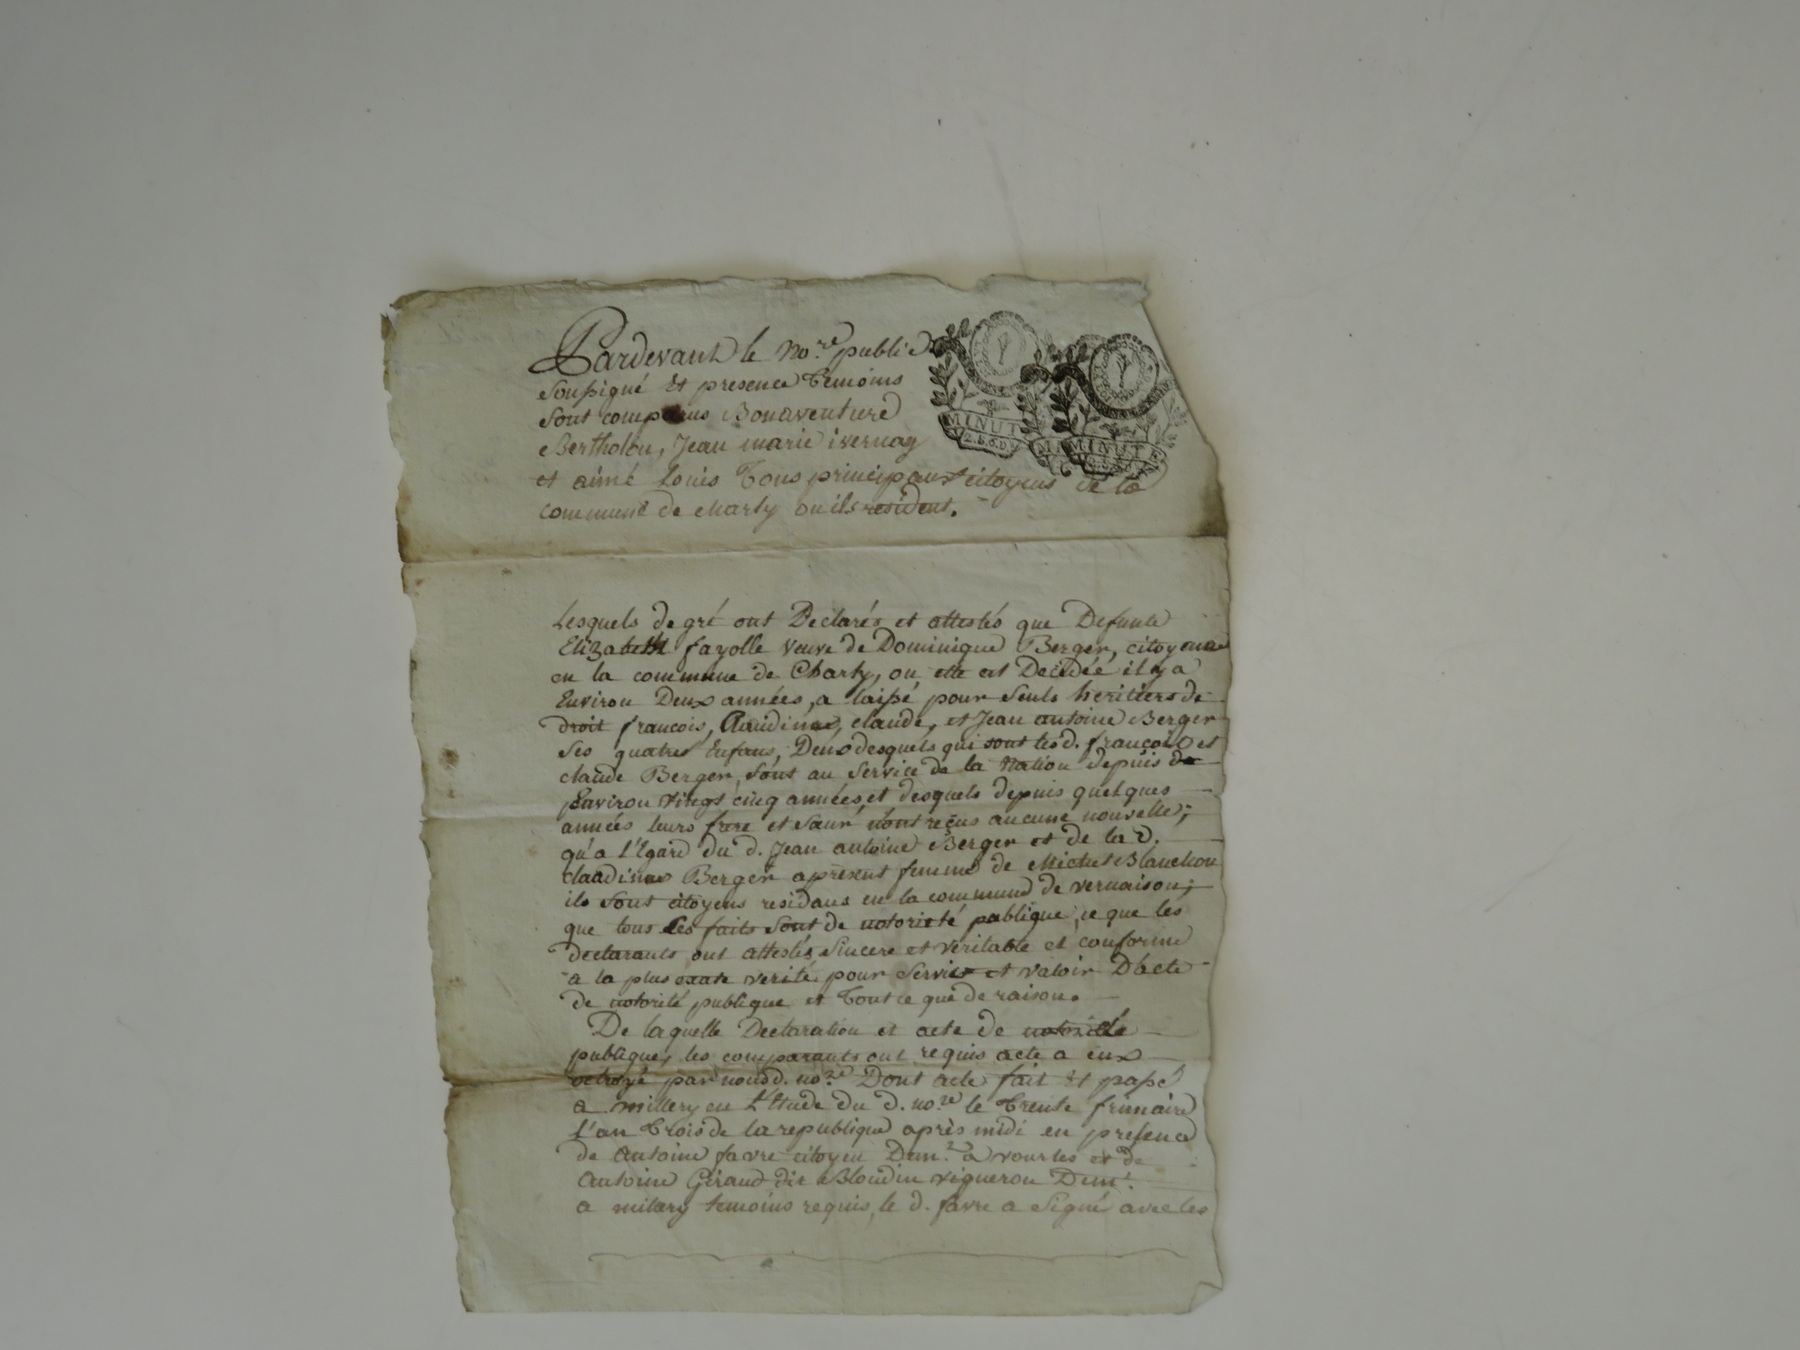 Pardevant le no.re public
Soussigné et presence Temoins
Sont comparus Bonaventure
Bertholon, Jean marie ivernay
et aimé Louis Tous principaux citoyens de la
commune de charly ou ils resident.
MINUTE
MINUTE
Lesquels de gré ont Declarés et attestés que Defunte
Elizabeth fayolle veuve de Dominique Berger, citoyenne
en la commune de Charly, ou elle est Decedéé il y a
Environ Deux années, a laissé pour seuls heritiers de
droit francois, Claudine, claude, et Jean antoine Berger
Ses quatres Enfans, Deux desquels qui sont les d. francois et
claude Berger, sont au Service de la Nation depuis de
Environ vingt cinq années, et desquels depuis quelques
années leurs frere et sœur n'ont reçus aucune nouvelle;
qu'a l'Egard du d. Jean antoine Berger et de la d.
claudine Berger apresent femme de Michel Blanchon
ils sont citoyens residans en la commune de vernaison;
que tous Ces faits sont de notorieté publique, ce que les
declarants ont attestés Sincere et veritable et conforme
a la plus exate verité pour servir et valoir D'acte
de notorité publique et Tout ce que de raison.
De laquelle Declaration et acte de notorieté
publique, les comparants ont requis acte a eux
octroyé par nous d. no.re Dont acte fait et passé
a millery en L'étude du d. no.re le Trente frimaire
L'an Trois de la republique après midi en presence
de Antoine favre citoyen Dem.t a vourles et de
Antoine Giraud dit Blondin vigneron Dem.t
a milery temoins requis, le d. favre a Signé avec les